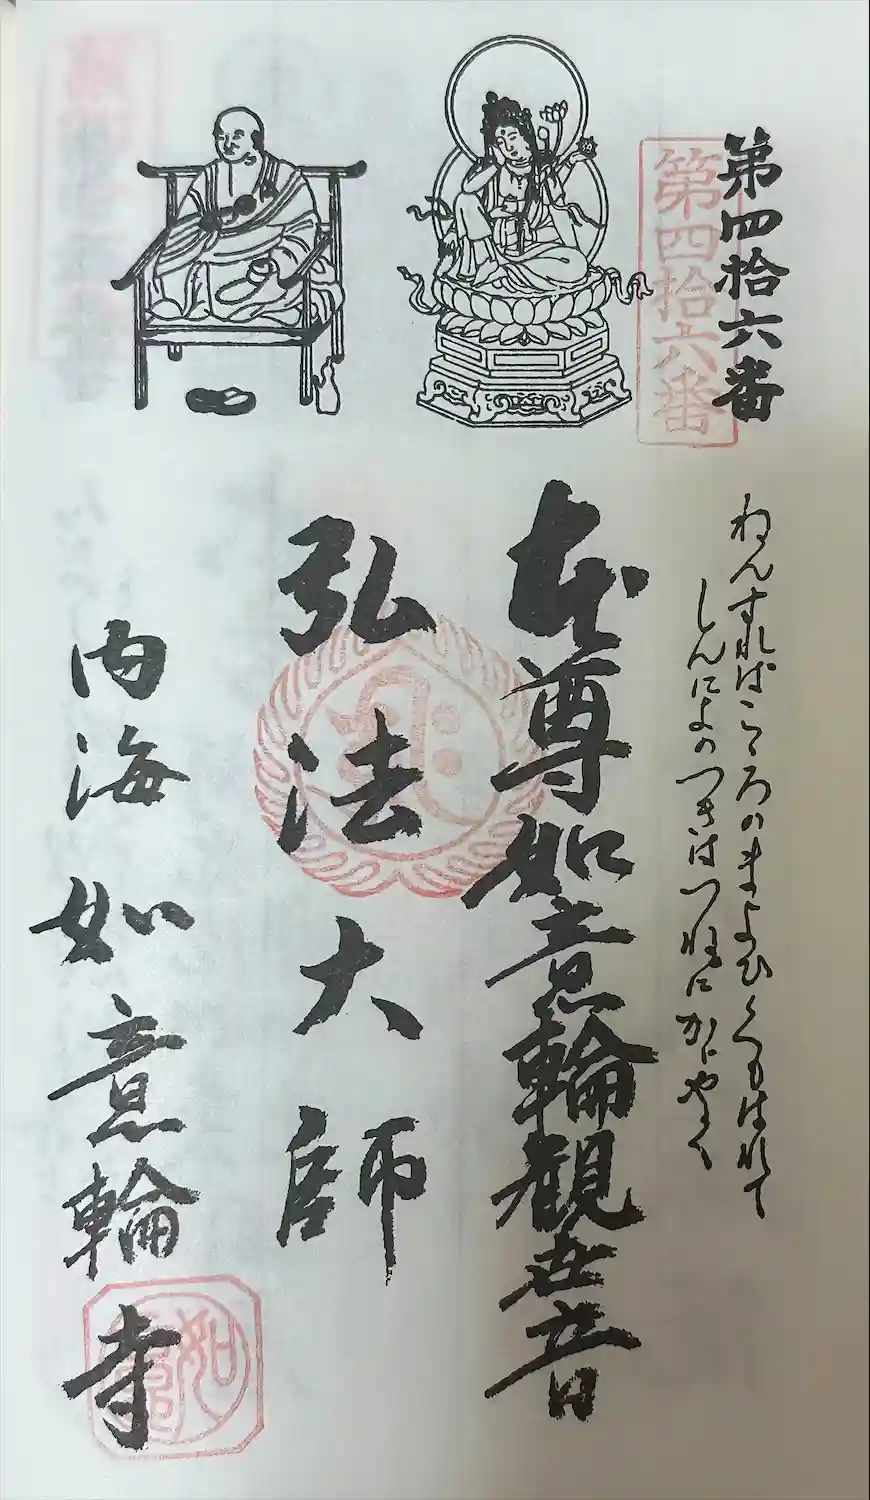 第四拾六番
第四拾六番
ねんすればこゝろのまよひくもはれて
しんによのつきはつねにかゞやく
本尊如意輪観世音
弘法大師
内海如意輪寺